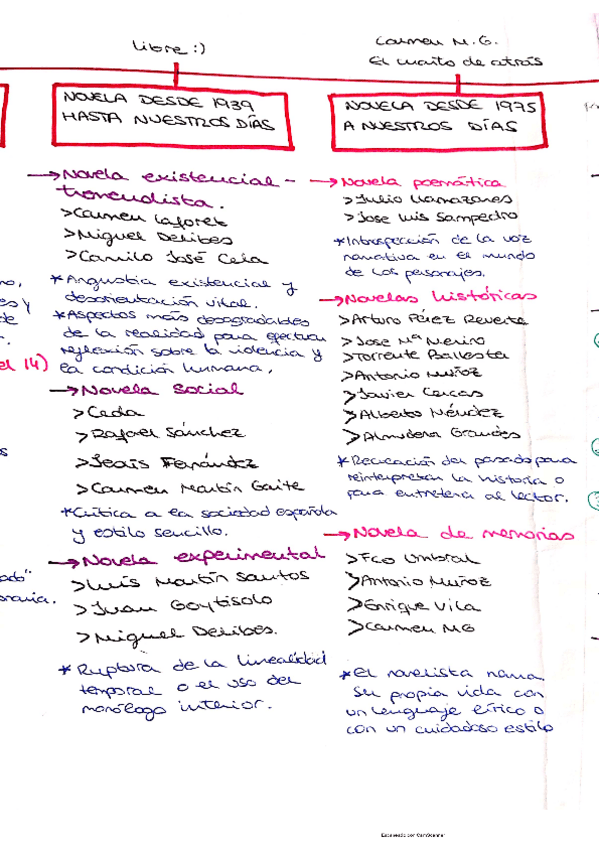 Libre :)
NOVELA DESDE 1939
HASTA NUESTROS DÍAS
→Novela existencial -
tremendista.
>Carmen Laforet
>Miguel Delibes
>Camilo José Cela
*Angustia existencial y
desorientación vital.
*Aspectos más desagradables
de la realidad para efectuar
reflexión sobre la violencia y
la condición humana.
→Novela social
>Cela
>Rafael Sánchez
>Jesús Fernández
>Carmen Martín Gaite
*Crítica a la sociedad española
y estilo sencillo.
→Novela experimental
>Luis Martín Santos
>Juan Goytisolo
>Miguel Delibes.
*Ruptura de la linealidad
temporal o el uso del
monólogo interior.
Carmen M. G.
El cuarto de atrás
NOVELA DESDE 1975
A NUESTROS DÍAS
→Novela poemática
>Julio Llamazares
>Jose Luis Sampedro
*Introspección de la voz
narrativa en el mundo
de los personajes.
→Novelas históricas
>Arturo Pérez Reverte
>Jose Mª Merino
>Torrente Ballesta
>Antonio Muñoz
>Javier Cercas
>Alberto Méndez
>Almudena Grandes
*Recreación del pasado para
reinterpretar la historia o
para entretener al lector.
→Novela de memorias
>Fco Umbral
>Antonio Muñoz
>Enrique Vila
>Carmen MG
*El novelista narra
su propia vida con
un lenguaje lírico o
con un cuidadoso estilo
el 14)
Escaneado con CamScanner